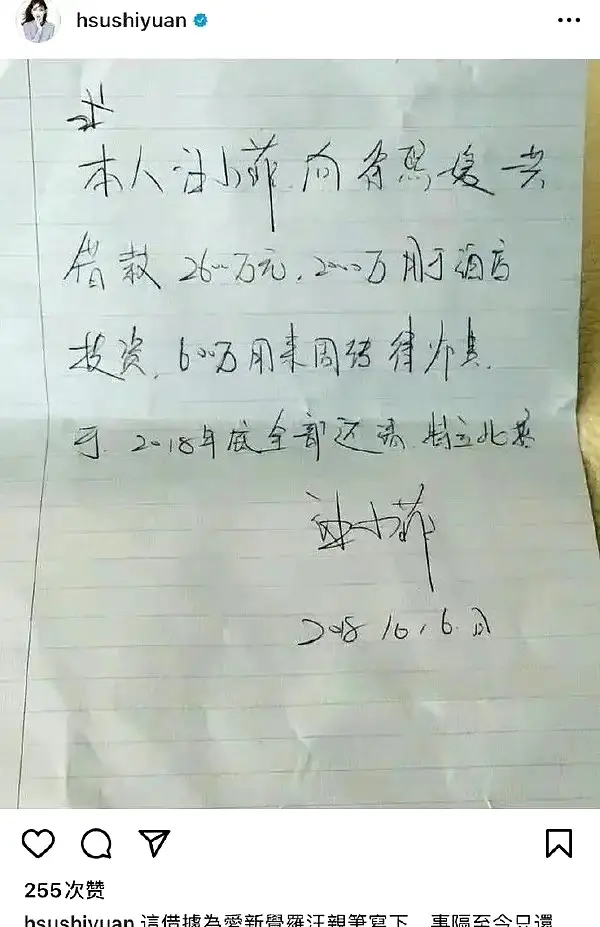 hsushiyuan
本人汪小菲向徐熙媛共
借款2600万元,2000万用于酒店
投资,600万用来周转律师费.
于2018年底全部还清,特立此宗
汪小菲
2018 10.6.日
255次赞
hsushiyuan 這借據為愛新覺羅汪親筆寫下,事隔至今只還